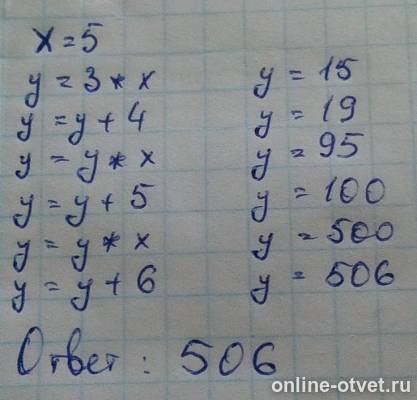 x = 5
y = 3 * x y = 15
y = y + 4 y = 19
y = y * x y = 95
y = y + 5 y = 100
y = y * x y = 500
y = y + 6 y = 506
Ответ : 506
online-otvet.ru